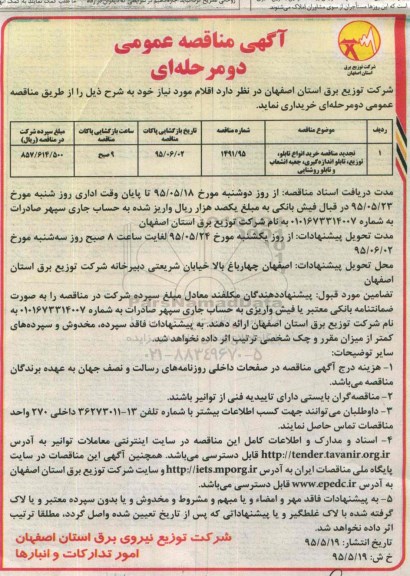 آگهی مناقصه عمومی
دومرحله‌ای
شرکت توزیع برق
استان اصفهان
شرکت توزیع برق استان اصفهان در نظر دارد اقلام مورد نیاز خود به شرح ذیل را از طریق مناقصه
عمومی دومرحله‌ای خریداری نماید.
ردیف موضوع مناقصه شماره مناقصه تاریخ بازگشایی پاکات مناقصه ساعت بازگشایی پاکات مناقصه مبلغ سپرده شرکت در مناقصه (ریال)
۱ تجدید مناقصه خرید انواع تابلو، توزیع، تابلو اندازه‌گیری، جعبه انشعاب و تابلو روشنایی ۱۴۹۱/۹۵ ۹۵/۰۶/۰۲ ۹ صبح ۸۵۷/۶۱۴/۵۰۰
مدت دریافت اسناد مناقصه: از روز دوشنبه مورخ ۹۵/۰۵/۱۸ تا پایان وقت اداری روز شنبه مورخ
۹۵/۰۵/۲۳ در قبال فیش بانکی به مبلغ یکصد هزار ریال واریز شده به حساب جاری سپهر صادرات
به شماره ۰۱۰۱۶۷۳۳۱۴۰۰۷ به نام شرکت توزیع برق استان اصفهان
مدت تحویل پیشنهادات: از روز یکشنبه مورخ ۹۵/۰۵/۲۴ لغایت ساعت ۸ صبح روز سه‌شنبه مورخ
۹۵/۰۶/۰۲
محل تحویل پیشنهادات: اصفهان چهارباغ بالا خیابان شریعتی دبیرخانه شرکت توزیع برق استان
اصفهان
تضامین مورد قبول: پیشنهاددهندگان مکلفند معادل مبلغ سپرده شرکت در مناقصه را به صورت
ضمانتنامه بانکی معتبر یا فیش واریزی به حساب جاری سپهر صادرات به شماره ۰۱۰۱۶۷۳۳۱۴۰۰۷ به
نام شرکت توزیع برق استان اصفهان ارائه دهند. به پیشنهادات فاقد سپرده، مخدوش و سپرده‌های
کمتر از میزان مقرر و چک شخصی ترتیب اثر داده نخواهد شد.
سایر توضیحات:
۱- هزینه درج آگهی مناقصه در صفحات داخلی روزنامه‌های رسالت و نصف جهان به عهده برندگان
مناقصه می‌باشد.
۲- مناقصه‌گران بایستی دارای تاییدیه فنی از توانیر باشند.
۳- داوطلبان می‌توانند جهت کسب اطلاعات بیشتر با شماره تلفن ۱۳-۳۶۲۷۳۰۱۱ داخلی ۲۷۰ واحد
مناقصات تماس حاصل نمایند.
۴- اسناد و مدارک و اطلاعات کامل این مناقصه در سایت اینترنتی معاملات توانیر به آدرس
http://tender.tavanir.org.ir قابل دسترسی می‌باشد. همچنین آگهی این مناقصات در سایت
پایگاه ملی مناقصات ایران به آدرس http://iets.mporg.ir و سایت شرکت توزیع برق استان اصفهان
به آدرس www.epedc.ir قابل دسترسی می‌باشد.
۵- به پیشنهادات فاقد مهر و امضاء و یا مبهم و مشروط و مخدوش و یا بدون سپرده معتبر و یا لاک
گرفته شده با لاک غلطگیر و یا پیشنهاداتی که پس از تاریخ تعیین شده واصل گردد، مطلقا ترتیب
اثر داده نخواهد شد.
تاریخ انتشار: ۹۵/۵/۱۹
خ ش: ۹۵/۵/۱۹
شرکت توزیع نیروی برق استان اصفهان
امور تدارکات و انبارها
ParsNamadData
۰۲۱-۸۸۳۴۹۶۷۰-۵